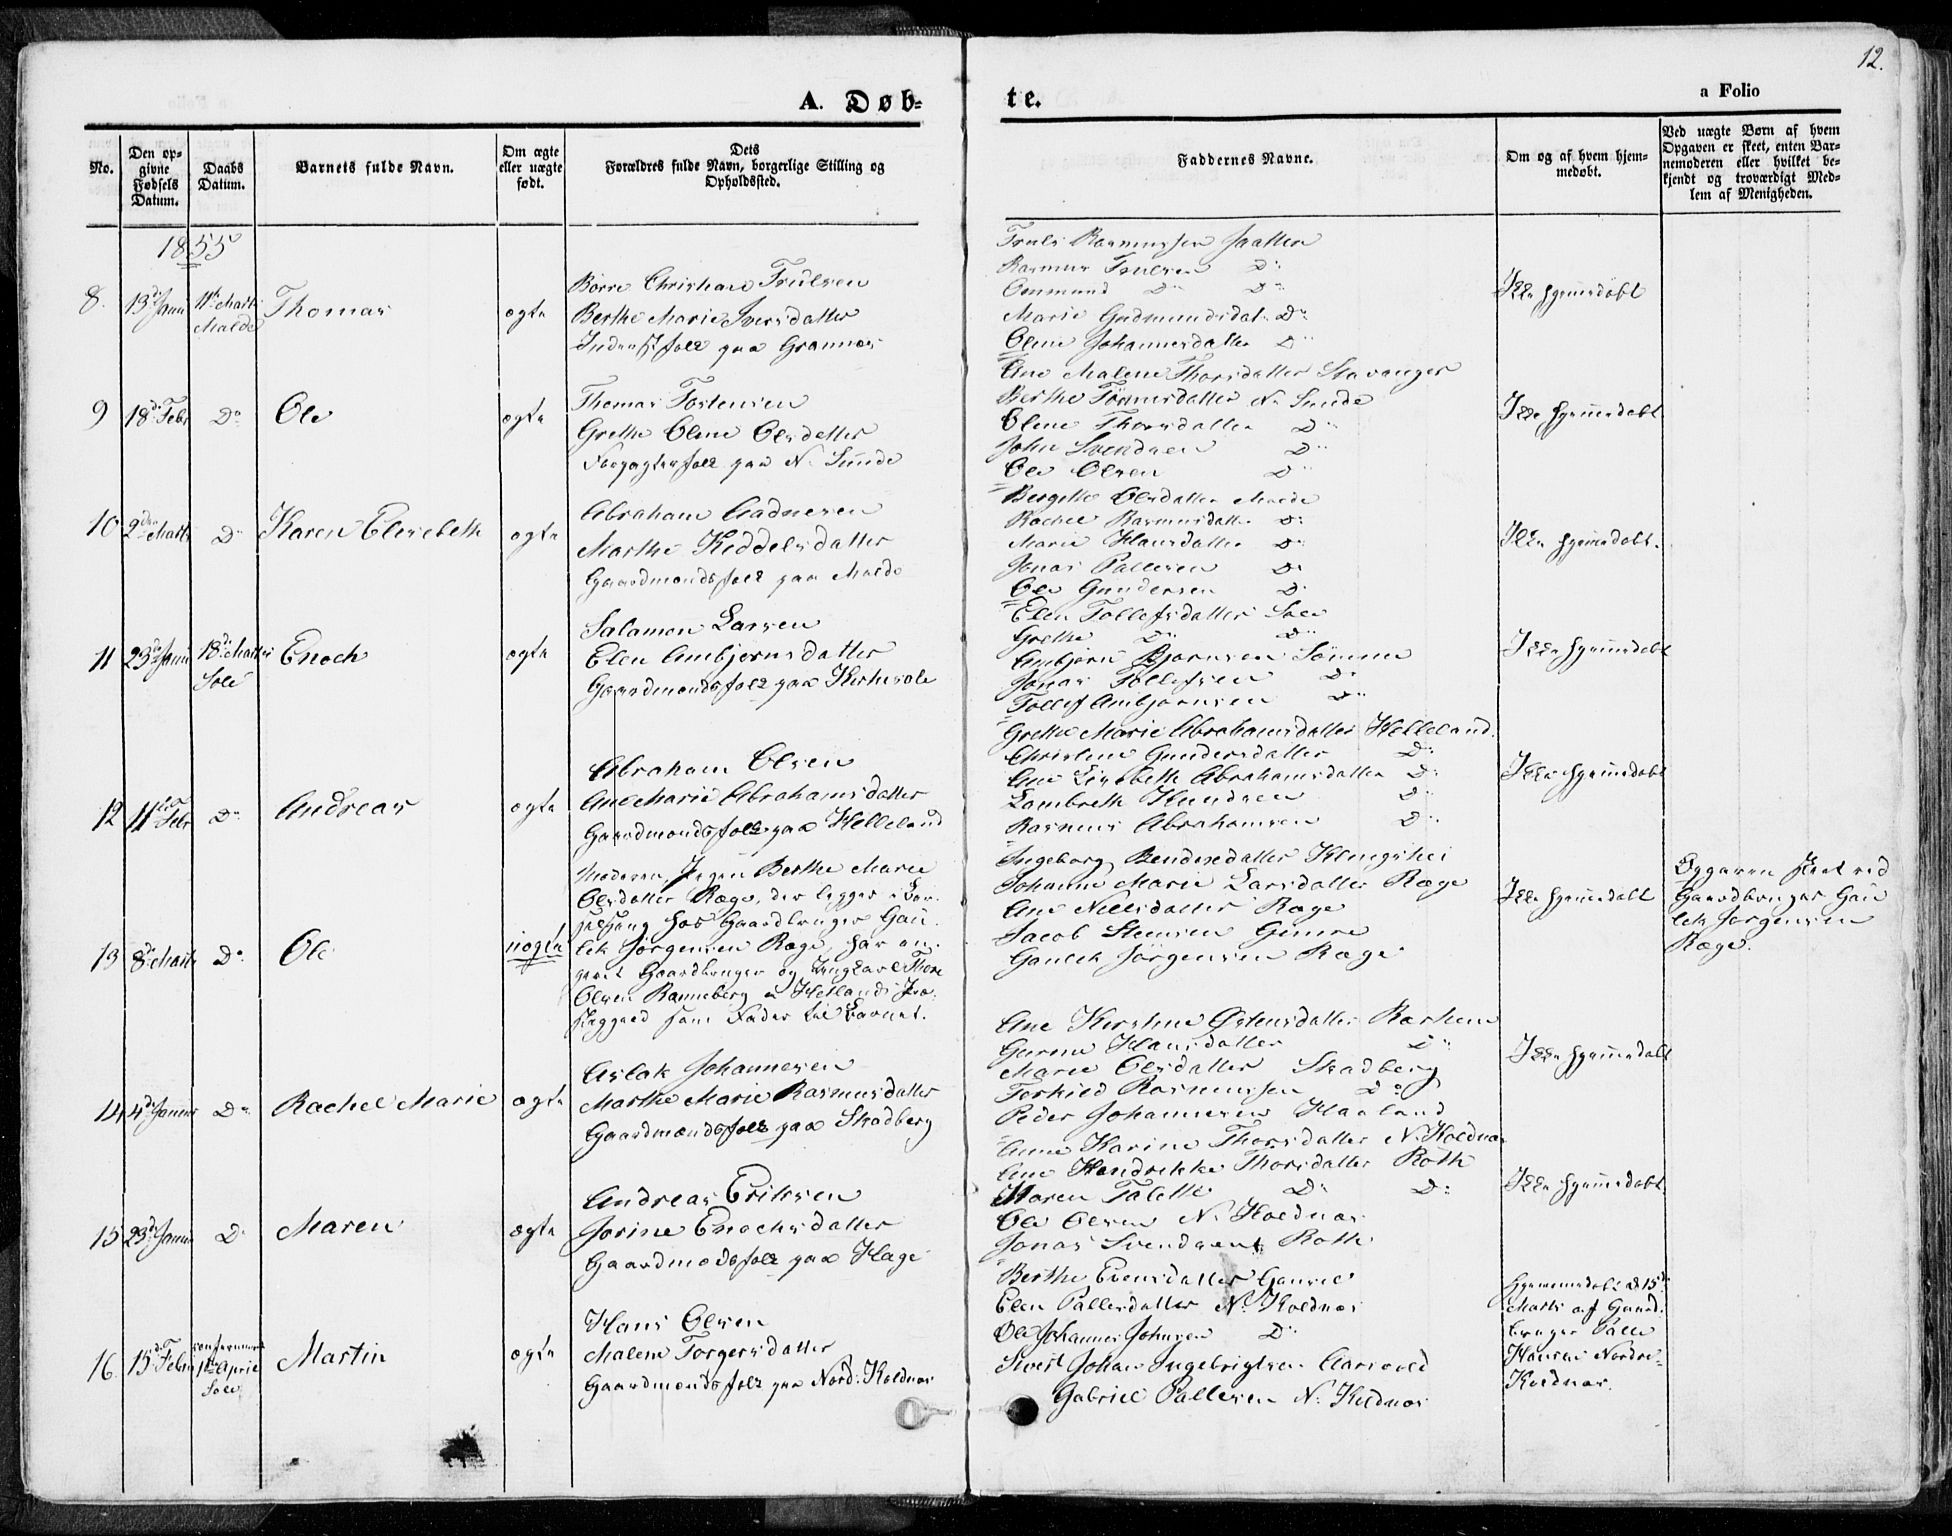 12.
A. Døb=
te.
a Folio
No.
Den op=
givne
Fødsels
Datum.
Daabs
Datum.
Barnets fulde Navn.
Om ægte
eller uægte
født.
Dets
Forældres fulde Navn, borgerlige Stilling og
Opholdssted.
Faddernes Navne.
Om og af hvem hjem=
medøbt.
Ved uægte Børn af hvem
Opgaven er skeet, enten Bar=
nemoderen eller hvilket be=
kjendt og troværdigt Med=
lem af Menigheden.
1855
8.
13de Janu
11te Marts
Malde
Thomas
ægte
Børre Christian Trulsen
Berthe Marie Iversdatter
Inderstfolk paa Grannæs
Truls Rasmussen Jaatten
Rasmus Trulsen Do
Ommund Do Do
Marie Gudmundsdat. Do
Olene Johannesdatter Do
Ikke hjemmedøbt
9
18de Febr
Do
Ole
ægte
Thomas Tostensen
Grethe Olene Olsdatter
Forpagterfolk paa N. Sunde
Ane Malene Thorsdatter Stavanger
Berthe Tønnesdatter N. Sunde
Olene Thorsdatter Do
John Svendsen Do
Ole Olsen Do
Ikke hjemmedøbt
10
2den Marts
Do
Karen Elisebeth
ægte
Abraham Aadnesen
Marthe Keddelsdatter
Gaardmandsfolk paa Malde
Bergitte Olsdatter Malde
Rachel Rasmusdatter Do
Marie Hansdatter Do
Jonas Pallesen Do
Ole Gundersen Do
Ikke hjemmedøbt.
11
23de Janu
18de Marts
Sole
Enoch
ægte
Salamon Larsen
Elen Ambjørnsdatter
Gaardmandsfolk paa Kirkesole
Elen Tollefsdatter Sole
Grethe Do Do
Ambjørn Bjørnsen Sømme
Jonas Tollefsen Do
Tollef Ambjørnsen Do
Ikke hjemmedøbt
12
11te Febr
Do
Andreas
ægte
Abraham Olsen
Ane Marie Abrahamsdatter
Gaardmandsfolk paa Helleland
Grethe Marie Abrahamsdatter Helleland.
Christine Gundersdatter Do
Ane Lisabeth Abrahamsdatter Do
Lambreth Knudsen Do
Rasmus Abrahamsen Do
Ikke hjemmedøbt
13
8de Marts
Do
Ole
uægte
Moderen, Pigen Berthe Marie
Olsdatter Ræge, der ligger i Bar=
selseng hos Gaardbruger Gau=
lek Jørgensen Ræge, har an=
givet Gaardbruger og Ungkarl Thore
Olsen Ranneberg i Hetlands Præ=
stegjeld som Fader til Barnet.
Ingeborg Bendixdatter Klingshei
Johanne Marie Larsdatter Ræge
Ane Nielsdatter Ræge
Jacob Steensen Gimre
Gaulek Jørgensen Ræge
Ikke hjemmedøbt
Opgaven skeet ved
Gaardbruger Gau
lek Jørgensen
Ræge.
14
4de Januar
Do
Rachel Marie
ægte
Aslak Johannesen
Marthe Marie Rasmusdatter
Gaardmandsfolk paa Skadberg
Ane Kirstine Østensdatter Røskene
Gurine Hansdatter Do
Marie Olsdatter Skadberg
Torkild Rasmussen Do
Peder Johannesen Haaland
Ikke hjemmedøbt
15
23de Janu
Do
Maren
ægte
Andreas Eriksen
Jorine Enochsdatter
Gaardmandsfolk paa Hage
Anne Karine Thorsdatter N. Koldnæs
Ane Hendrikke Thorsdatter Roth
Karen Talette Do Do
Ole Olsen N. Koldnæs
Jonas Svendsen Roth
Ikke hjemmedøbt.
16.
15de Febru
confirmeret
1ste April
Sole
Martin
ægte
Hans Olsen
Malene Torgersdatter
Gaardmandsfolk paa Nord: Koldnæs
Berthe Evensdatter
Elen Pallesdatter N. Koldnæs
Ole Johannes Johnsen Do
Sivert Johan Ingebrigtsen Aarsvold
Gabriel Pallesen N. Koldnæs
Hjemmedøbt d 15de
Marts af Gaard=
bruger Palle
Hansen Nordre=
Koldnæs.